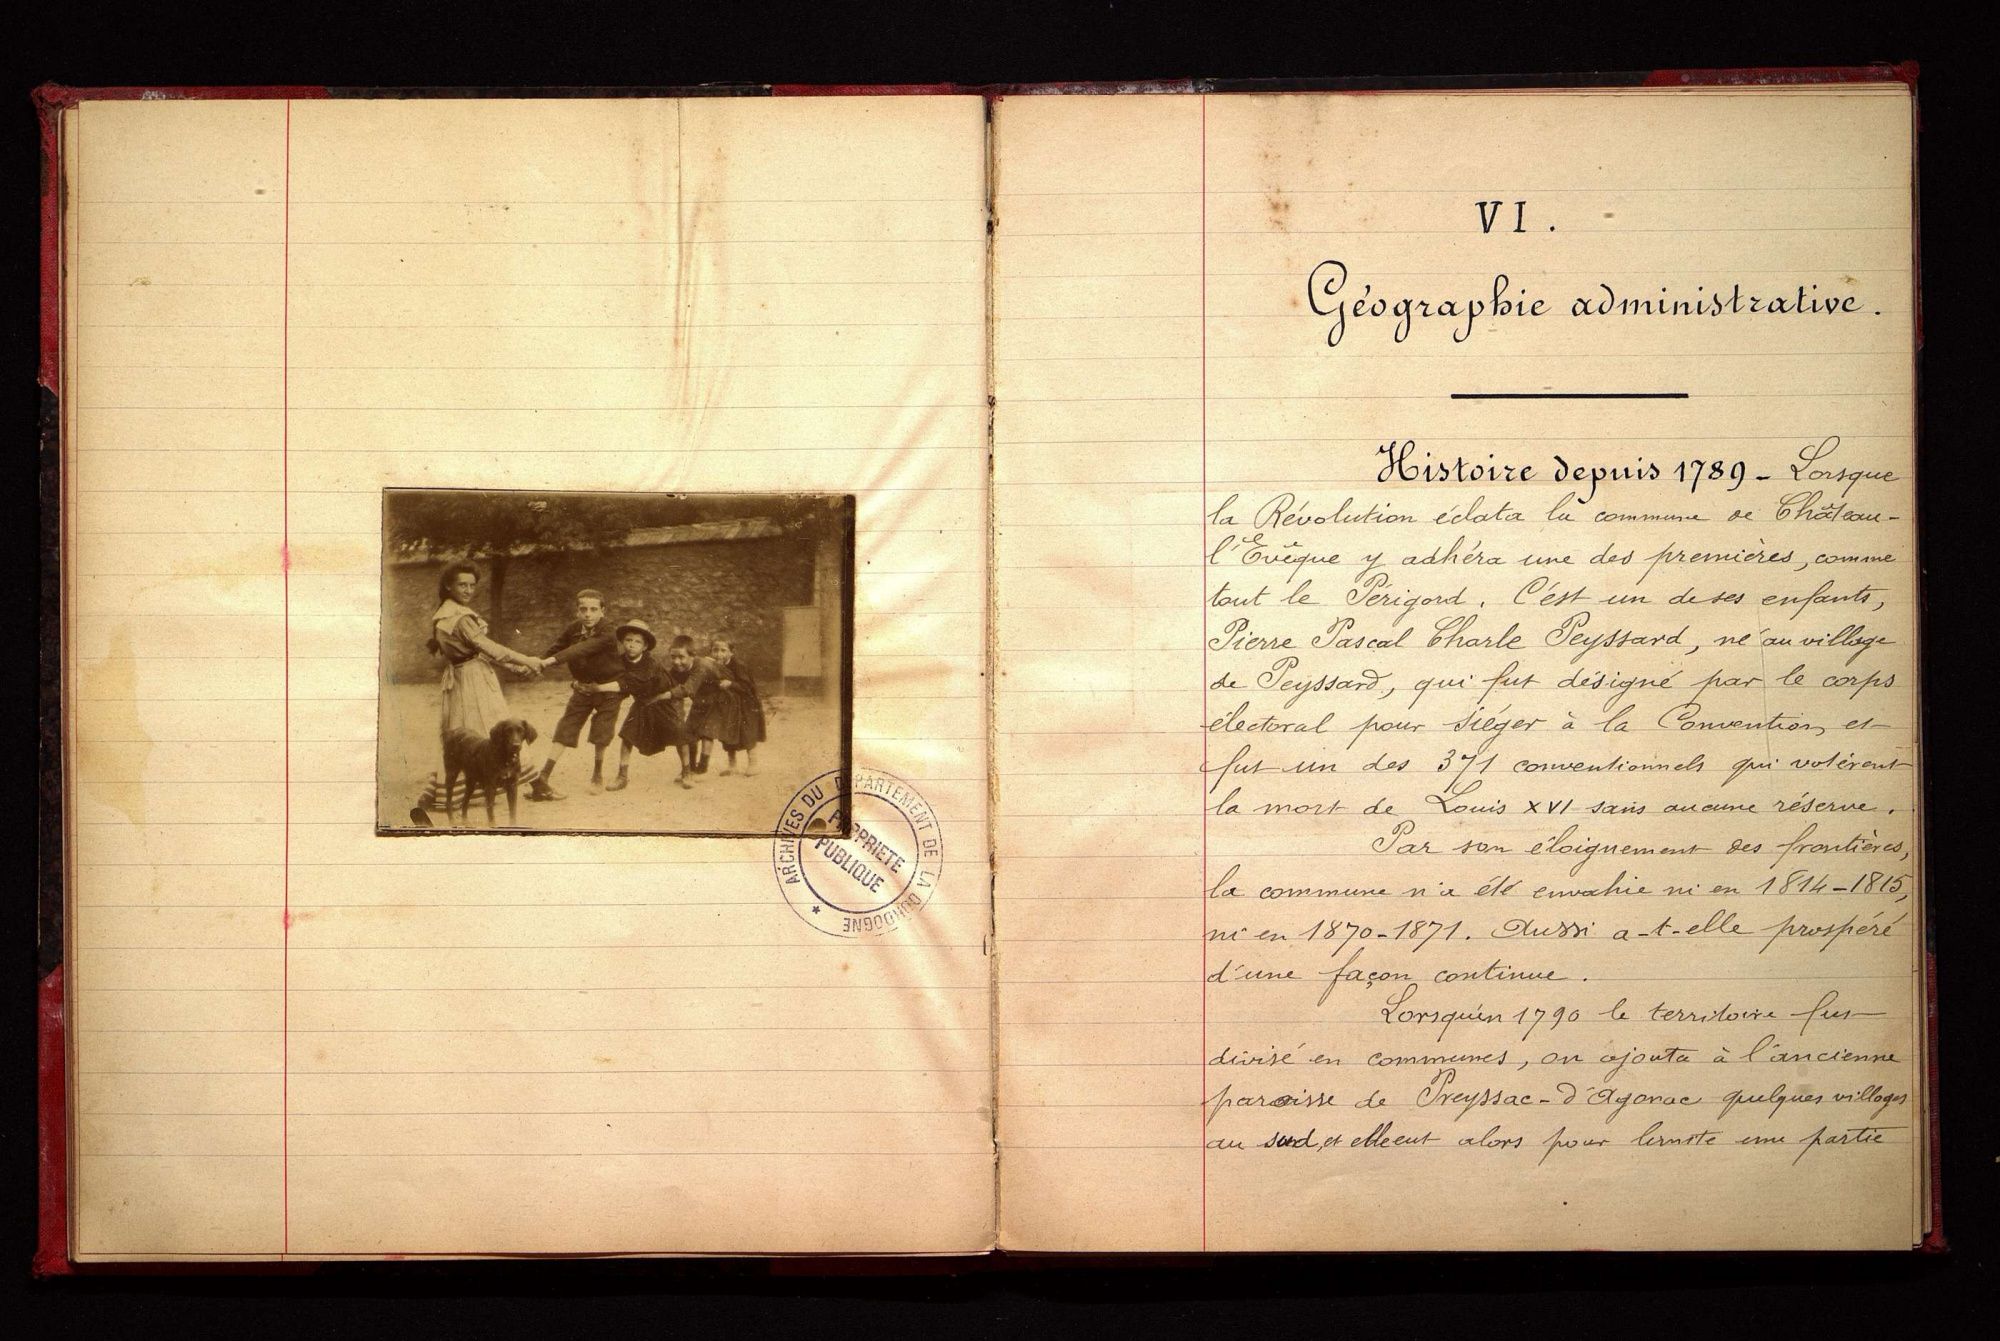 ARCHIVES DU DEPARTEMENT DE LA DORDOGNE *
PROPRIETE
PUBLIQUE
VI.
Géographie administrative.
Histoire depuis 1789 - Lorsque
la Révolution éclata la commune de Château-
l'Evêque y adhéra une des premières, comme
tout le Périgord. C'est un de ses enfants,
Pierre Pascal Charle Peyssard, né au village
de Peyssard, qui fut désigné par le corps
électoral pour siéger à la Convention, et
fut un des 371 conventionnels qui votèrent
la mort de Louis XVI sans aucune réserve.
Par son éloignement des frontières,
la commune n'a été envahie ni en 1814-1815,
ni en 1870-1871. Aussi a-t-elle prospéré
d'une façon continue.
Lorsqu'en 1790 le territoire fut
divisé en communes, on ajouta à l'ancienne
paroisse de Preyssac-d'Agonac quelques villages
au sud, et elle eut alors pour limite une partie